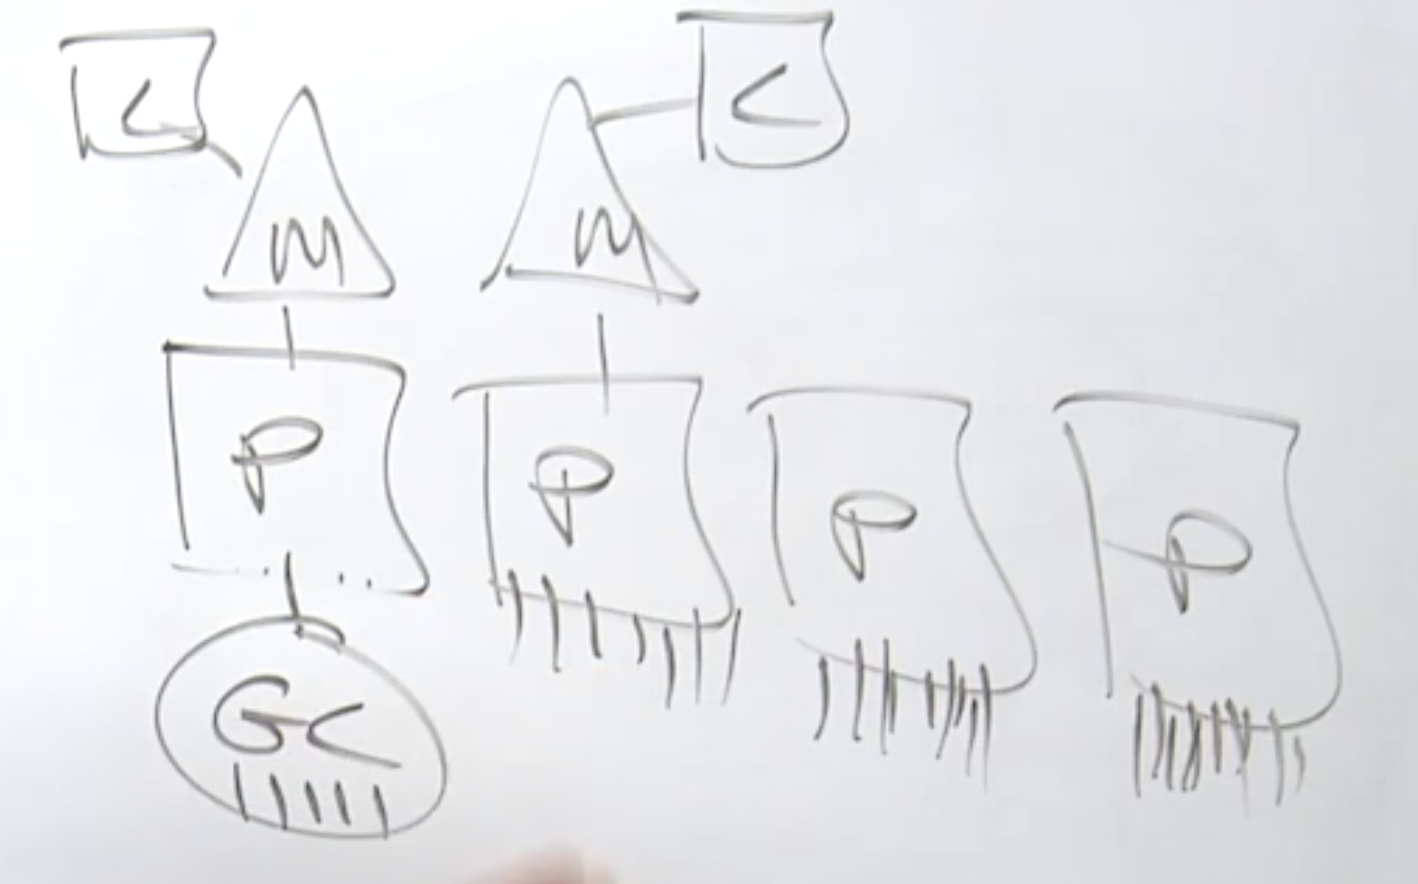 C C
M M
P P P P
GC